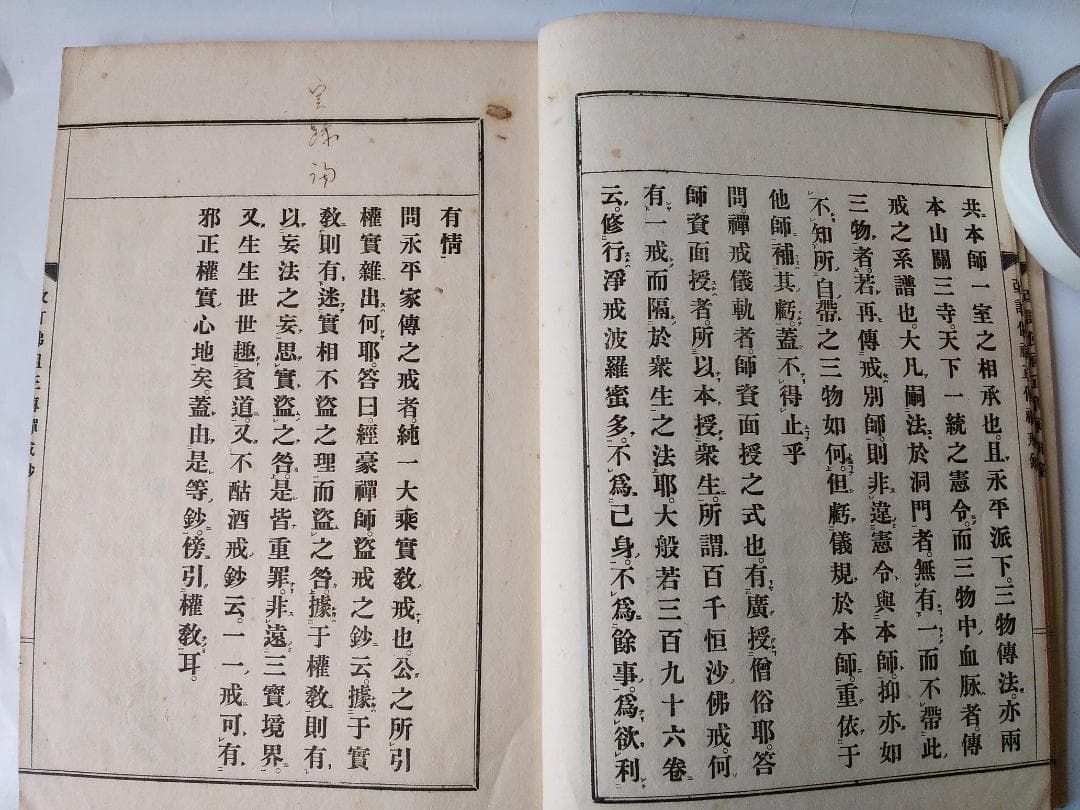 共本師一室之相承也。且永平派下。三物傳法。亦兩
本山關三寺。天下一統之憲令。而三物中血脉者。傳
戒之系譜也。大凡嗣法於洞門者。無有一而不帶此
三物者。若再傳戒別師。則非違憲令與本師。抑亦如
不知所自帶之三物如何。但虧儀規於本師。重依于
他師補其虧。蓋不得止乎
問。禪戒儀軌者。師資面授之式也。有廣授僧俗耶。答
師資面授者。所以本授衆生。所謂百千恒沙佛戒。何
有一戒而隔於衆生之法耶。大般若三百九十六卷
云。修行淨戒波羅蜜多。不爲己身。不爲餘事。爲欲利
有情
問永平家傳之戒者。純一大乘實敎戒也。公之所引
權實雜出何耶。答曰。經豪禪師。盜戒之鈔云。據于實
敎則有迷實相不盜之理而盜之咎。據于權敎則有
以妄法之妄思實盜之咎。是皆重罪。非遠三寶境界。
又生生世世趣貧道。又不酤酒戒鈔云。一一戒可有
邪正權實心地矣。蓋由是等鈔。傍引權敎耳。